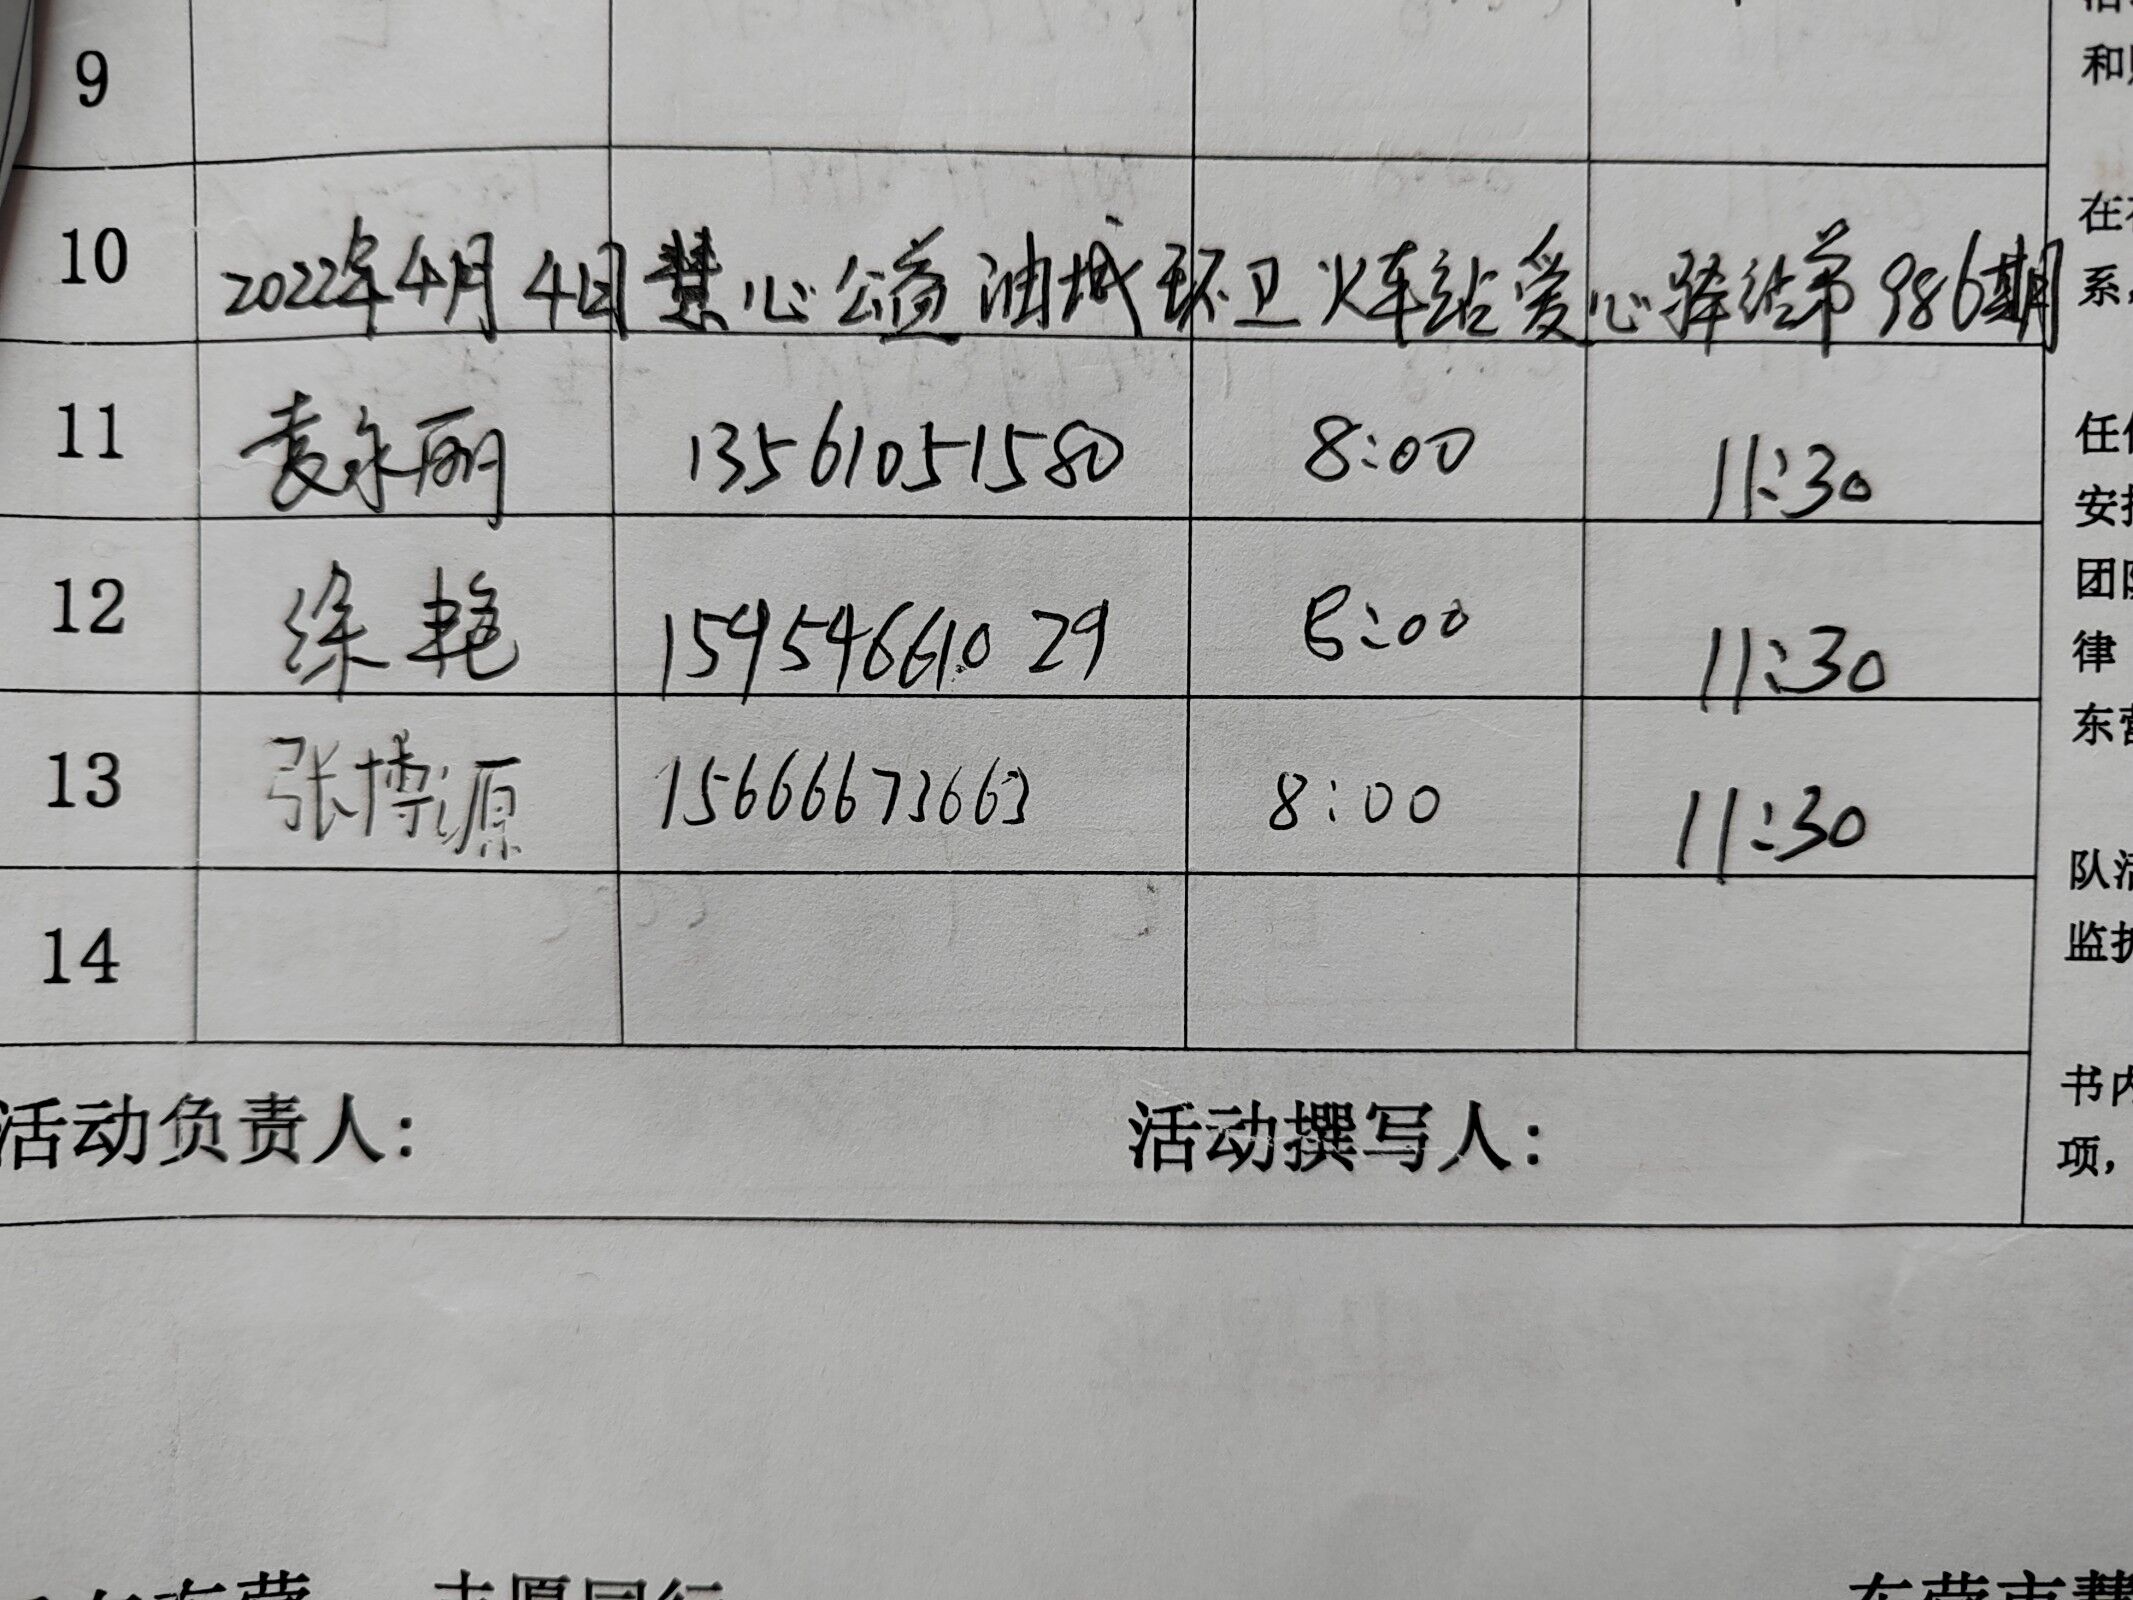 9
10 2022年4月4日慧心公益油城环卫火车站爱心驿站第986期
11 袁永丽 13561051580 8:00 11:30
12 徐艳 15954661029 8:00 11:30
13 张博源 15666673663 8:00 11:30
14
活动负责人: 活动撰写人:
和
在
系,
任
安
团
律
东营
队活
监护
书内
项,
志愿同行
东营市慧